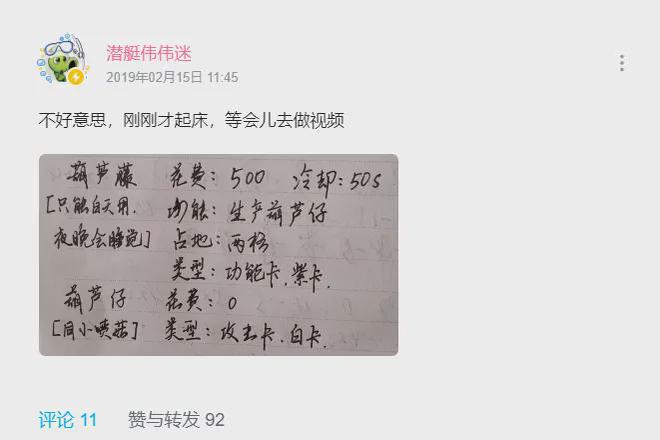 潜艇伟伟迷
2019年02月15日 11:45
不好意思，刚刚才起床，等会儿去做视频
葫芦藤 花费：500 冷却：50s
[只能白天用, 功能：生产葫芦仔
夜晚会睡觉] 占地：两格
类型：功能卡、紫卡.
葫芦仔 花费：0
[同小喷菇] 类型：攻击卡、白卡.
评论 11 赞与转发 92